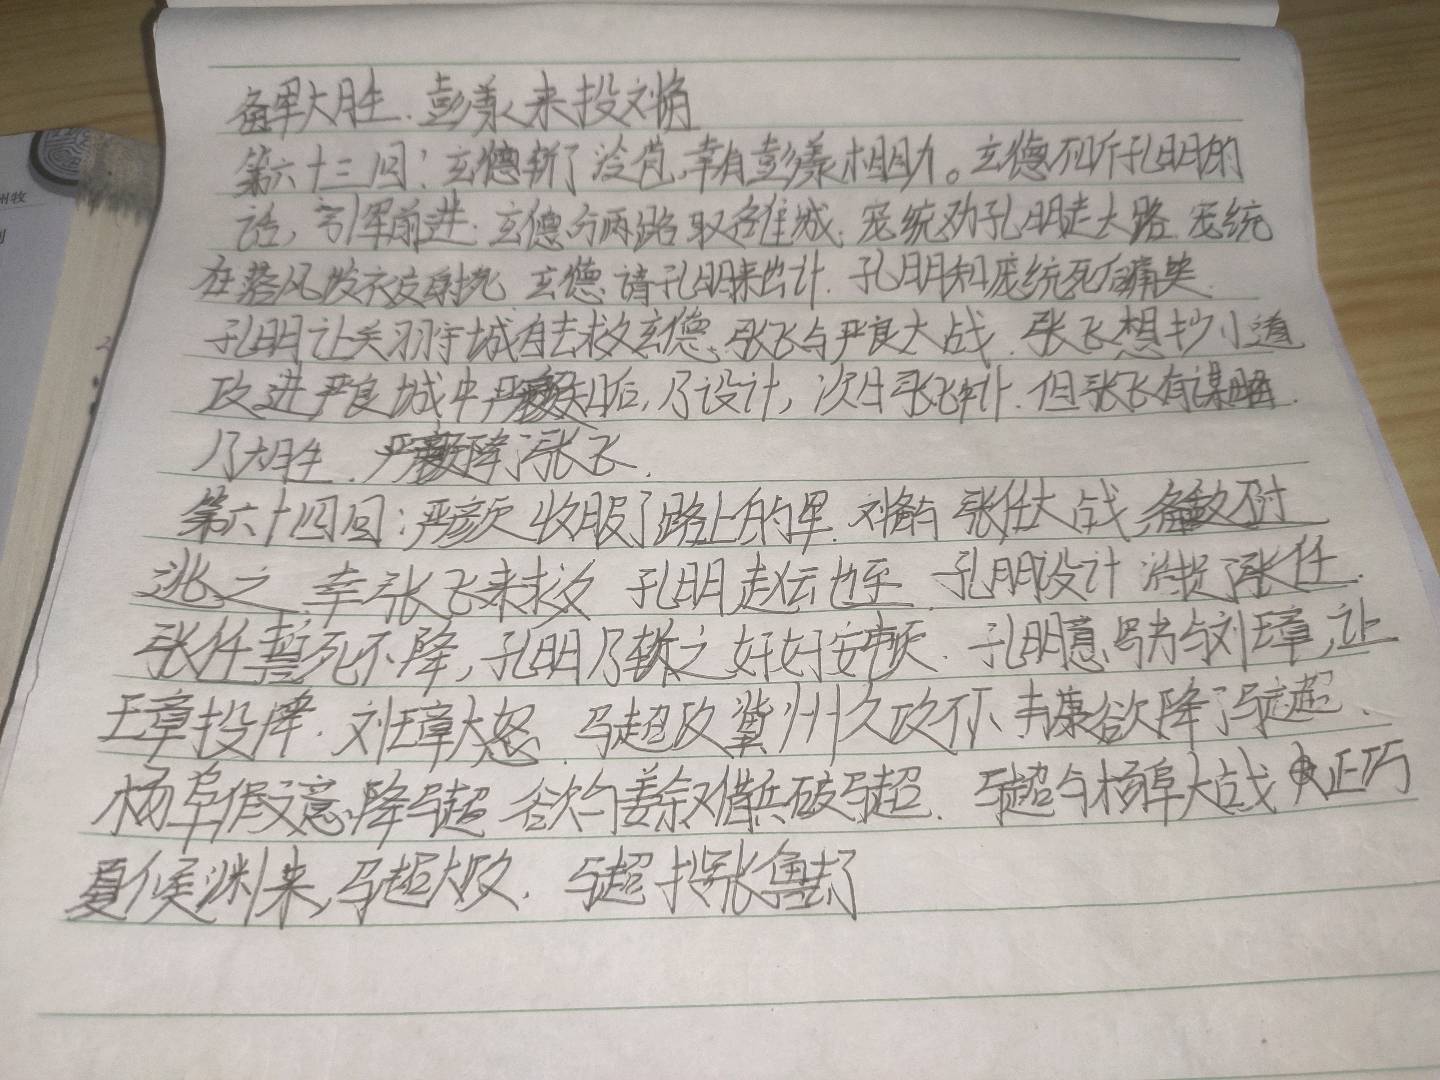 备军大胜.彭羕来投刘备
第六十三回:玄德斩了泠苞,幸有彭羕相助。玄德不听孔明的
话,引军前进.玄德分两路取各雒城.宠统劝孔明走大路 宠统
在落凤坡被射死 玄德请孔明来出计.孔明知庞统死后痛哭.
孔明让关羽守城自去救玄德.张飞与严良大战.张飞想抄小道
攻进严良城中严颜知后,乃设计,次日张飞中计.但张飞有谋略.
乃大胜.严颜降了张飞.
第六十四回:严颜收服了路上的军.刘备与张任大战 备敌不过
逃之.幸张飞来救 孔明赵云也至.孔明设计活捉了张任.
张任誓死不降,孔明乃斩之好好安葬.孔明意写书与刘璋,让
王璋投降.刘璋大怒.马超攻冀州久攻不下 韦康欲降了马超.
杨阜假意降马超 欲约姜叙借兵破马超.马超与杨阜大战 正巧
夏侯渊来,马超大败.马超投张鲁去了
州牧